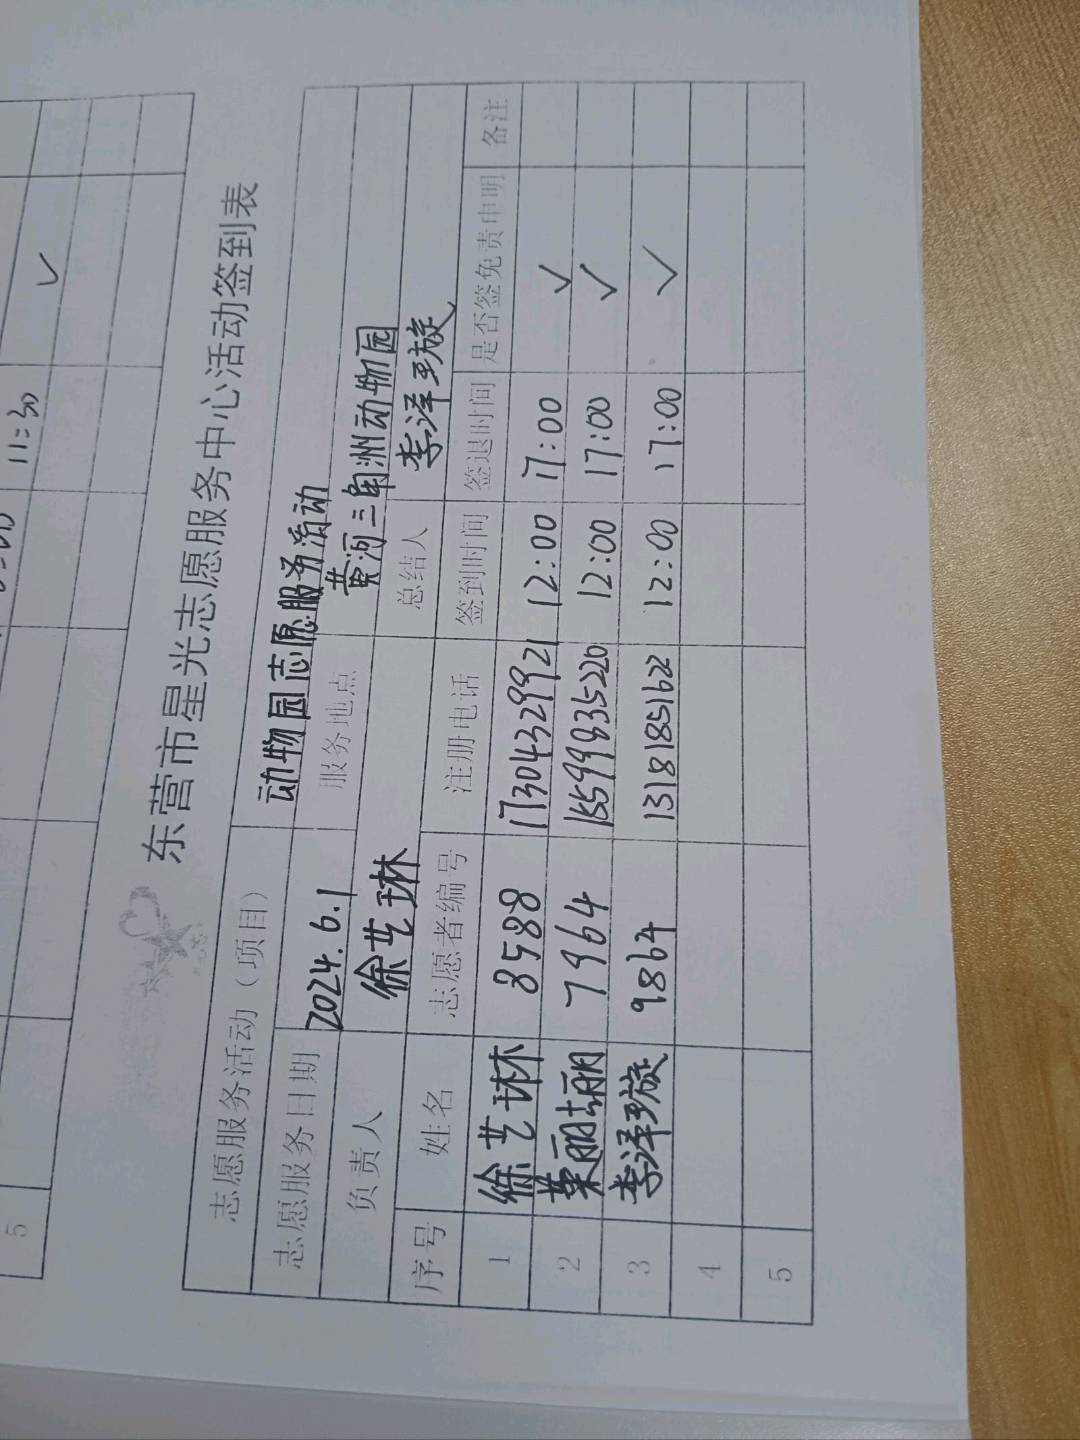 5 11:30 ✓
东营市星光志愿服务中心活动签到表
志愿服务活动（项目） 动物园志愿服务活动
志愿服务日期 2024.6.1 服务地点 黄河三角洲动物园
负责人 徐艺琳 总结人 李泽璇
序号 姓名 志愿者编号 注册电话 签到时间 签退时间 是否签免责申明 备注
1 徐艺琳 8588 17304329921 12:00 17:00 ✓
2 7964 15599835220 12:00 17:00 ✓
3 李泽璇 9864 13181851622 12:00 17:00 ✓
4
5